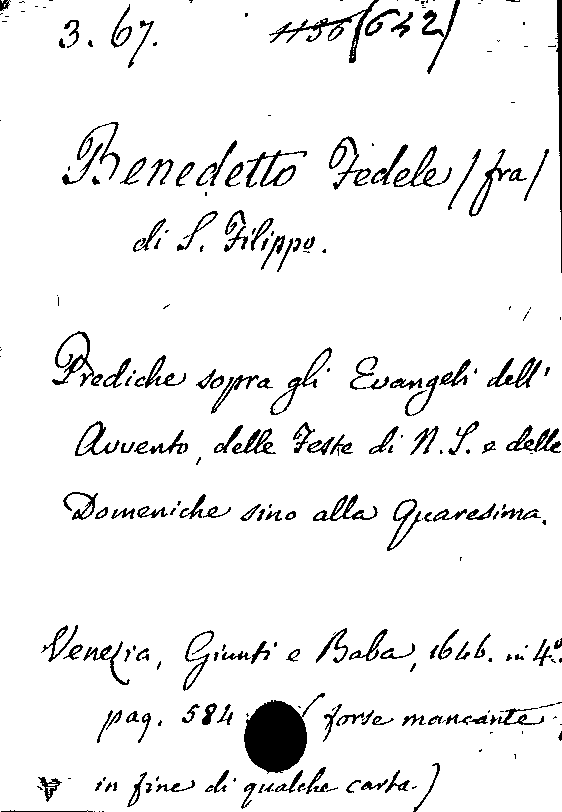 3. 67. 1136 (642)
Benedetto Fedele / fra /
di S. Filippo.
Prediche sopra gli Evangeli dell'
Avvento, delle Feste di N. S. e delle
Domeniche sino alla Quaresima.
Venezia, Giunti e Baba, 1646. in 4º.
pag. 584 ( forse mancante
in fine di qualche carta.)